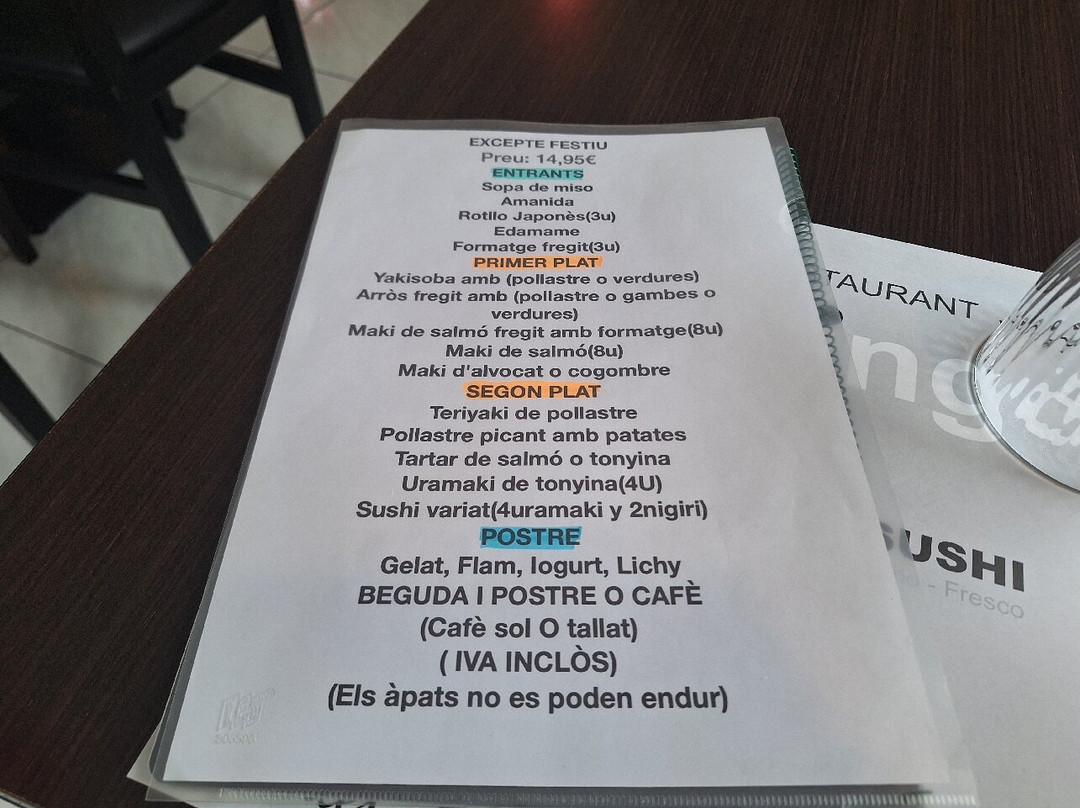 EXCEPTE FESTIU
Preu: 14,95€
ENTRANTS
Sopa de miso
Amanida
Rotllo Japonès(3u)
Edamame
Formatge fregit(3u)
PRIMER PLAT
Yakisoba amb (pollastre o verdures)
Arròs fregit amb (pollastre o gambes o
verdures)
Maki de salmó fregit amb formatge(8u)
Maki de salmó(8u)
Maki d'alvocat o cogombre
SEGON PLAT
Teriyaki de pollastre
Pollastre picant amb patates
Tartar de salmó o tonyina
Uramaki de tonyina(4U)
Sushi variat(4uramaki y 2nigiri)
POSTRE
Gelat, Flam, Iogurt, Lichy
BEGUDA I POSTRE O CAFÈ
(Cafè sol O tallat)
( IVA INCLÒS)
(Els àpats no es poden endur)
TAURANT
ng
SUSHI
- Fresco